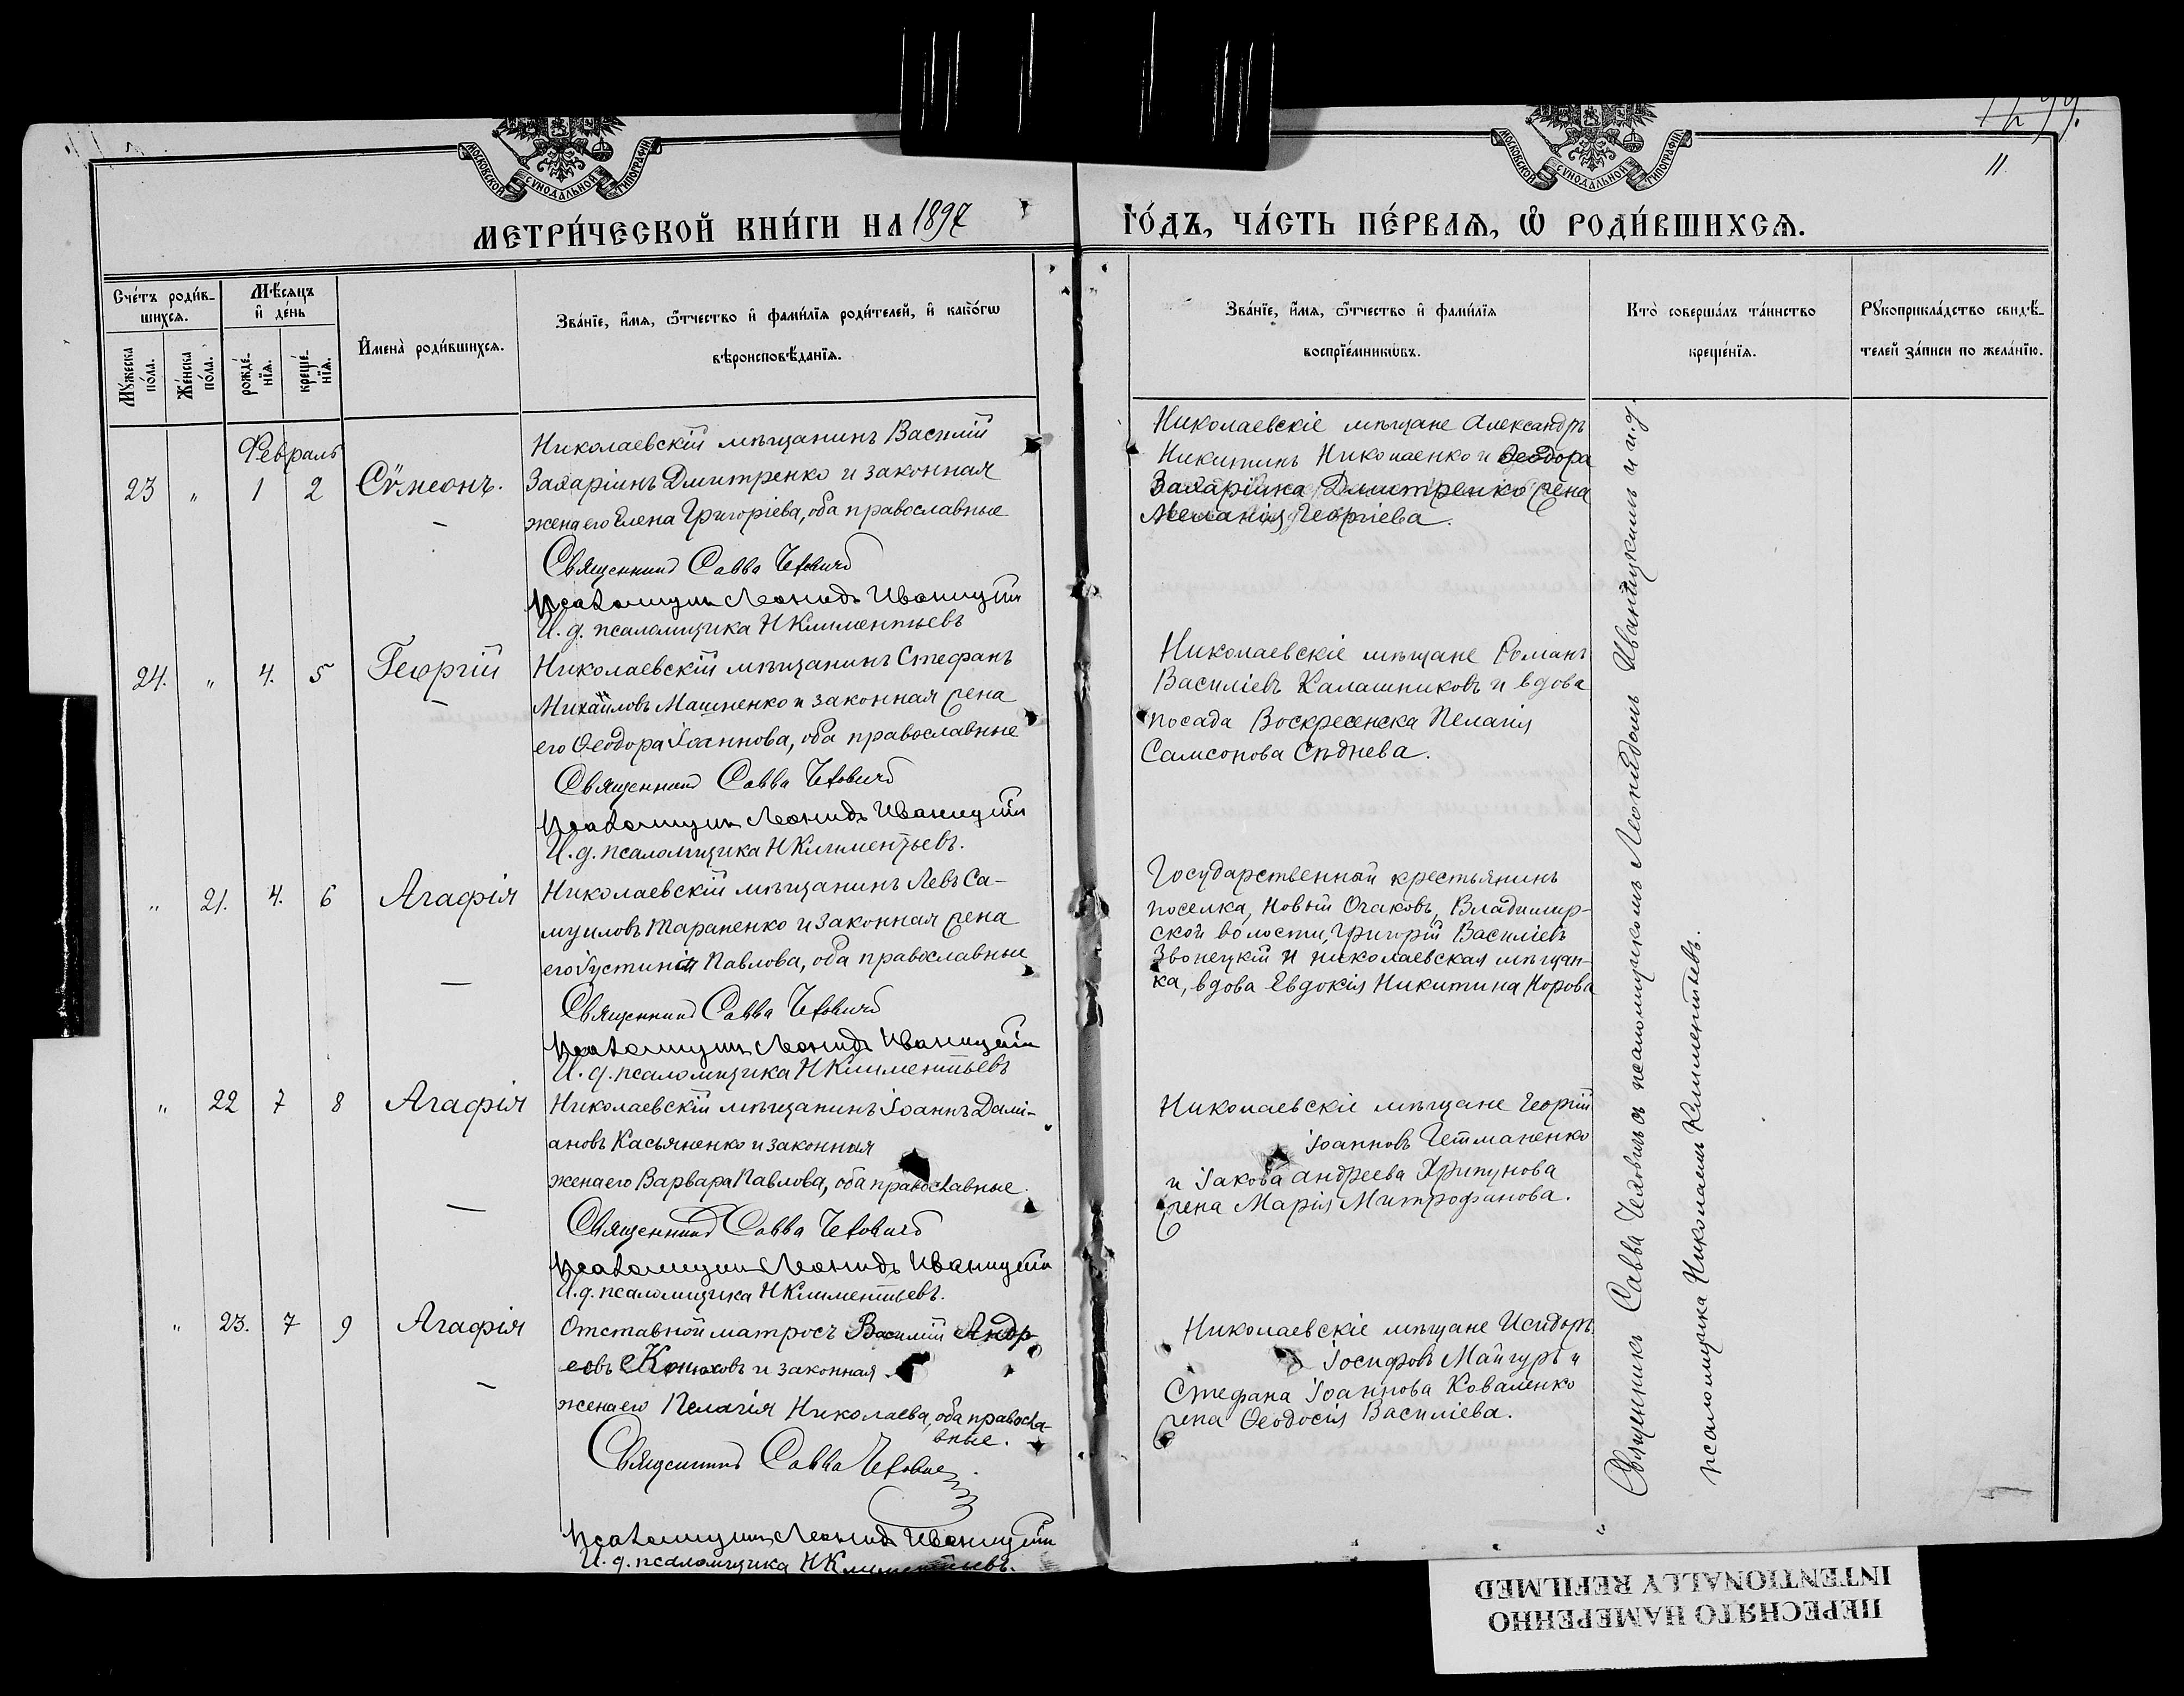 МОСКОВСКОЙ СѴНОДАЛЬНОЙ ТИПОГРАФІИ
МОСКОВСКОЙ СѴНОДАЛЬНОЙ ТИПОГРАФІИ
11.
МЕТРИ́ЧЕСКОЙ КНИ́ГИ НА 1897 ГО́ДЪ, ЧА́СТЬ ПЕ́РВАѦ, Ѡ҆ РОДИ́ВШИХСѦ.
Сче́тъ роди́в-
шихсѧ.
Мꙋ́жеска по́ла.
Же́нска по́ла.
Мѣ́сѧцъ
и҆ де́нь
рожде́-нїѧ.
креще́-нїѧ.
И҆мена̀ роди́вшихсѧ.
Зва́нїе, и҆́мѧ, ѻ҆́тчество и҆ фами́лїѧ роди́телей, и҆ како́гѡ
вѣроисповѣ́данїѧ.
Зва́нїе, и҆́мѧ, ѻ҆́тчество и҆ фами́лїѧ
воспрїе́мникѡвъ.
Кто̀ соверша́лъ та́инство
креще́нїѧ.
Рꙋкоприкла́дство свидѣ́-
телей за́писи по жела́нїю.
Февраль
23 " 1 2 Сѵмеонъ.
Николаевскій мѣщанинъ Василій
Захаріинъ Дмитренко и законная
жена его Елена Григоріева, оба православные
Священникъ Савва Чехович
Псаломщикъ Леонидъ Иваницкій
И. д. псаломщика Н Климентьевъ
Николаевскіе мѣщане Александръ
Никитинъ Николаенко и Ѳеодора
Захаріина Дмитренко жена
Меланія Георгіева.
24. " 4. 5 Георгій
Николаевскій мѣщанинъ Стефанъ
Михайловъ Машненко и законная жена
его Ѳеодора Іоаннова, оба православные
Священникъ Савва Чехович
Псаломщикъ Леонидъ Иваницкій
И. д. псаломщика Н Климентьевъ.
Николаевскіе мѣщане Романъ
Василіевъ Калашниковъ и вдова
посада Воскресенска Пелагія
Самсонова Сѣднева.
" 21. 4. 6 Агафія
Николаевскій мѣщанинъ Левъ Са-
муиловъ Тараненко и законная жена
его Іустинія Павлова, оба православные
Священникъ Савва Чехович
Псаломщикъ Леонидъ Иваницкій
И. д. псаломщика Н Климентьевъ
Государственный крестьянинъ
поселка, Новый Очаковъ, Владимир-
ской волости, Григорій Василіевъ
Звонецкій и николаевская мѣщан-
ка, вдова Евдокія Никитина Норова
" 22 7 8 Агафія
Николаевскій мѣщанинъ Іоаннъ Дамі-
ановъ Касьяненко и законная
жена его Варвара Павлова, оба православные.
Священникъ Савва Чехович
Псаломщикъ Леонидъ Иваницкій
И. д. псаломщика Н Климентьевъ.
Николаевскіе мѣщане Георгій
Іоанновъ Гетманенко
и Іакова Андреева Хрипунова
жена Марія Митрофанова.
" 23. 7 9 Агафія
Отставной матросъ Василій Андр-
еевъ Конюховъ и законная
жена его Пелагія Николаева, оба правосла-
вные.
Священникъ Савва Чехович
Псаломщикъ Леонидъ Иваницкій
И. д. псаломщика Н Климентьевъ.
Николаевскіе мѣщане Исидоръ
Іосифовъ Майгуръ и
Стефана Іоаннова Коваленко
жена Ѳеодосія Василіева.
Священникъ Савва Чеховичъ съ псаломщикомъ Леонидомъ Иваницкимъ и и.д.
псаломщика Николаемъ Климентьевъ.
ПЕРЕСНЯТО НАМЕРЕННО
INTENTIONALLY REFILMED